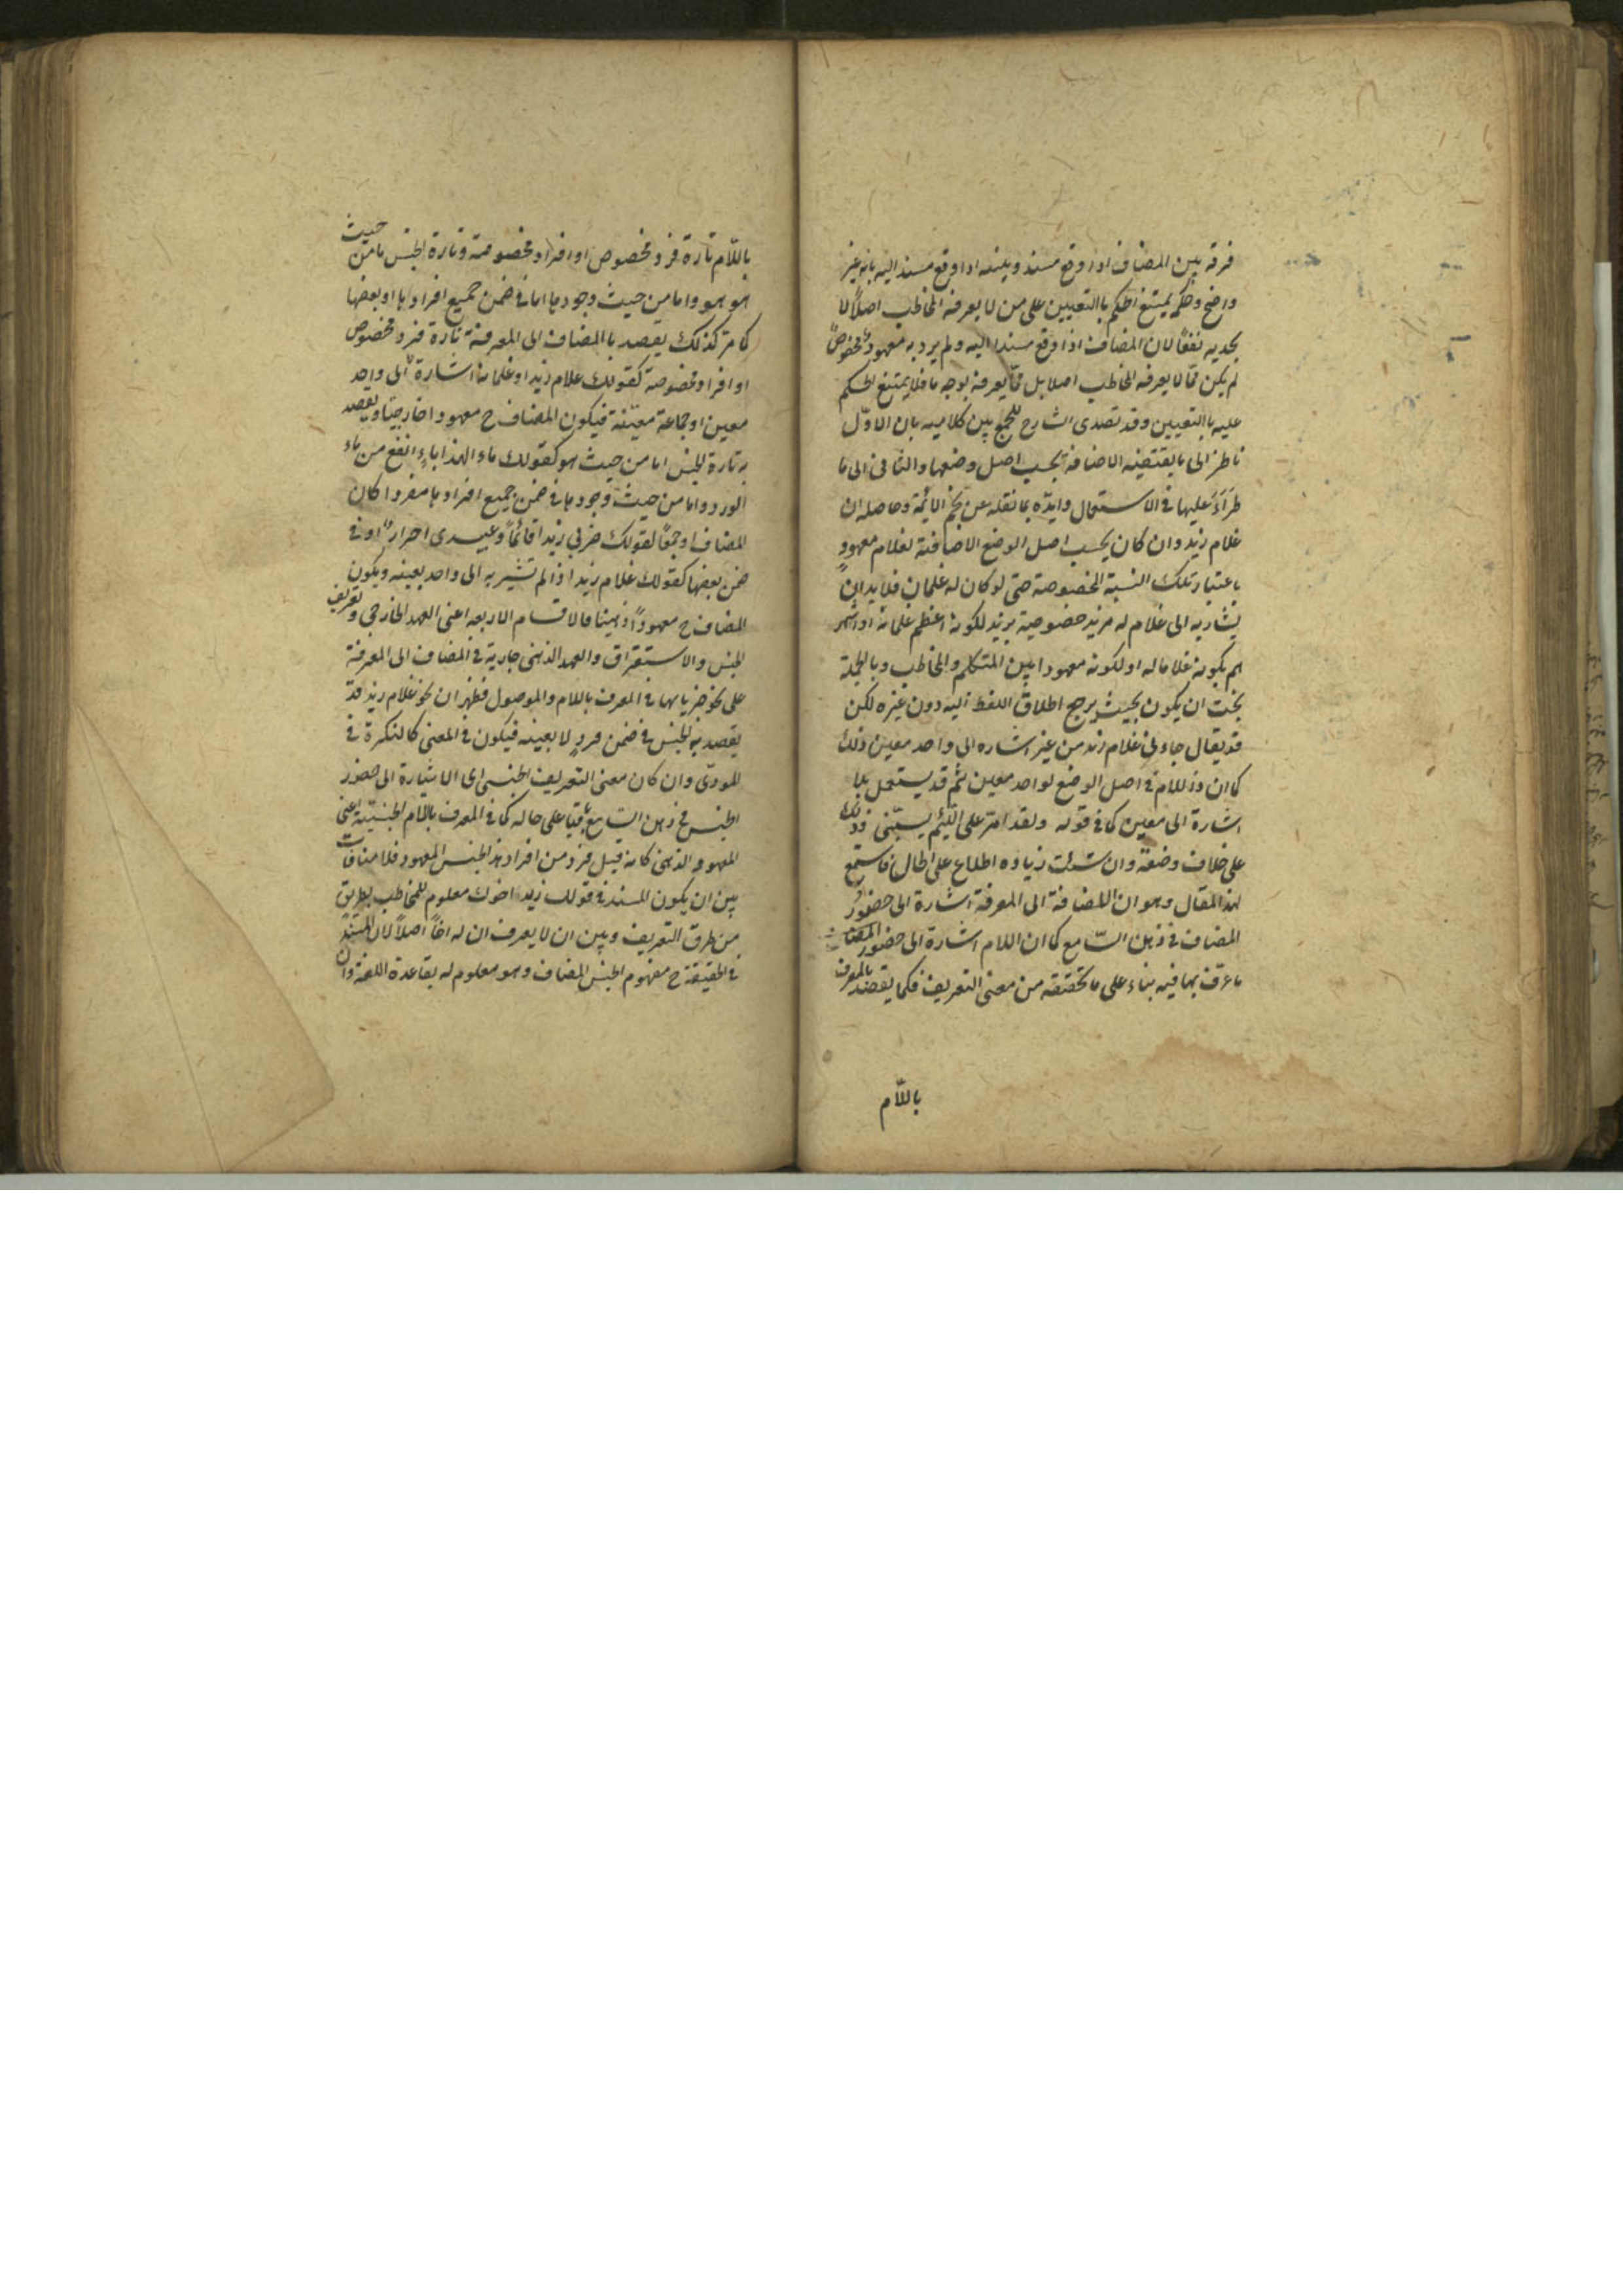 فرقه بين المضاف اذا وقع مسند وبينه اذا وقع مسند اليه بانه غير
واضح وحكم يمتنع الحكم باالتعيين على من لا يعرفه المخاطب اصلاً لا
يجديه نفعًا لان المضاف اذا وقع مسندا اليه ولم يرد به معهود مخصوص
لم يكن ممّا لا يعرفه المخاطب اصلا بل ممّا يعرفه بوجه ما فلا يمتنع الحكم
عليه باالتعيين وقد تصدى الشارح للجمع بين كلاميه بان الاوّل
ناظر الى ما يقتضيه الاضافة بحسب اصل وضعها والثانى الى ما
طرَأَ عليها فى الاستعمال وايّده بما نقله عن نجم الائمّة وحاصله ان
غلام زيد وان كان بحسب اصل الوضع الاضافية لغلام معهود
باعتبار تلك النسبة المخصوصة حتى لو كان له غلمان فلا بد ان
يشار به الى غلام له مزيد خصوصية بزيد لكونه اعظم غلمانه او اشهر
هم بكونه غلاما له او لكونه معهودا بين المتكلم والمخاطب وبالجملة
يجب ان يكون بحيث يرجع اطلاق اللفظ اليه دون غيره لكن
قد يقال جاءنى غلام زيد من غير اشاره الى واحد معين وذلك
كما ان ذا اللام فى اصل الوضع لواحد معين ثم قد يستعمل بلا
اشارة الى معين كما فى قوله ولقد امرّ على اللئيم يسبّنى وذلك
على خلاف وضعه وان شئت زياده اطلاع على الحال فاستمع
لهذا المقال وهو ان الاضافة الى المعرفة اشارة الى حضور
المضاف فى ذهن السّامع كما ان اللام اشارة الى حضور
ما عرّف بها فيه بناء على ما تحققته من معنى التعريف فكما يقصد بالمعرف
باللّام
باللّام تارة فرد مخصوص او افراد مخصوصة وتارة الجنس اما من حيث
هو هو واما من حيث وجودها اما فى ضمن جميع افرادها او بعضها
كما مر كذلك يقصد باالمضاف الى المعرفة تارة فرد مخصوص
او افراد مخصوصة كقولك غلام زيد او غلمانه اشارة الى واحد
معين او جماعة معيّنة فيكون المضاف ح معهودا خارجيّا ويقصد
به تارة الجنس اما من حيث هو كقولك ماء الهندباء انفع من ماء
الورد واما من حيث وجودها فى ضمن جميع افرادها مفردا كان
المضاف او جمعًا كقولك ضربى زيدا قائمًا وعبيدى احرار او فى
ضمن بعضها كقولك غلام زيد اذا لم تشير به الى واحد بعينه ويكون
المضاف ح معهودًا ذهنيّا فالاقسام الاربعه اعنى العهد الخارجى وتعريف
الجنس والاستغراق والعهد الذهنى جارية فى المضاف الى المعرفة
على نحو جريانها فى المعرف باللام والموصول فظهر ان نحو غلام زيد قد
يقصد به الجنس فى ضمن فردٍ لا بعينه فيكون فى المعنى كالنكرة فى
المودّى وان كان معنى التعريف الجنسى اى الاشارة الى حضور
الجنس فى ذهن السّامع باقيا على حاله كما فى المعرف باللام الجنسيّة اعنى
المعهود الذهنى كانه قيل فرد من افراد هذا الجنس المعهود فلا منافات
بين ان يكون المسند فى قولك زيد اخوك معلوم للمخاطب بطريق
من طرق التعريف وبين ان لا يعرف ان له اخاً اصلاً لان المسند
فى الحقيقة ح مفهوم الجنس المضاف وهو معلوم له بقاعدة اللغة وان